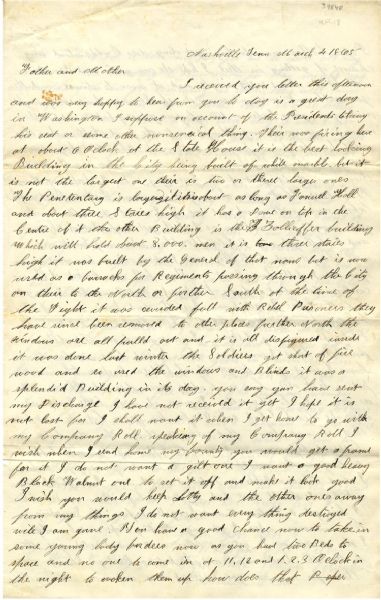 Nashville Tenn March 4 1865
Father and Mother
I received you letter this afternoon
and was very happy to hear from you to day is a great day
in Washington I suppose on account of the Presidents taking
his seat or some other nonsensical thing. Their was fireing here
at about 6 Oclock at the State House it is the best looking
Building in the City being built of white marble but it
is not the largest one their is two or three larger ones
The Penetentiary is about as long as Faneuil Hall
and about three Stories high it has a Dome on top in the
Centre of it the other Building is the Zollicoffer building
which will hold about 8,000. men it is three stories
high it was built by the General of that name but is now
used as a barracks for Regiments passing through the City
on their to the North or farther South at the time of
the Fight it was crowded full with Rebel Prisoners they
have since been removed to other places further North the
windows are all pulled out and it is all disfigured inside
it was done last winter the Soldiers got short of fire
wood and so used the windows and Blinds it was a
splendid Building in its day. you say you have sent
my Discharge I have not received it yet I hope it is
not lost for I shall want it when I get home to go with
my Company Roll. speaking of my Company Roll I
wish when I send home my bounty you would get a frame
for it I do not want a gilt one I want a good heavy
Black Walnut one to set it off and make it look good
I wish you would keep Lotty and the other ones away
from my things I do not want every thing destroyed
while I am gone. You have a good chance now to take in
some young lady borders now as you had two Beds to
space and no one to come in at 11, 12 and 1. 2. 3 Oclock in
the night to waken them up how does that